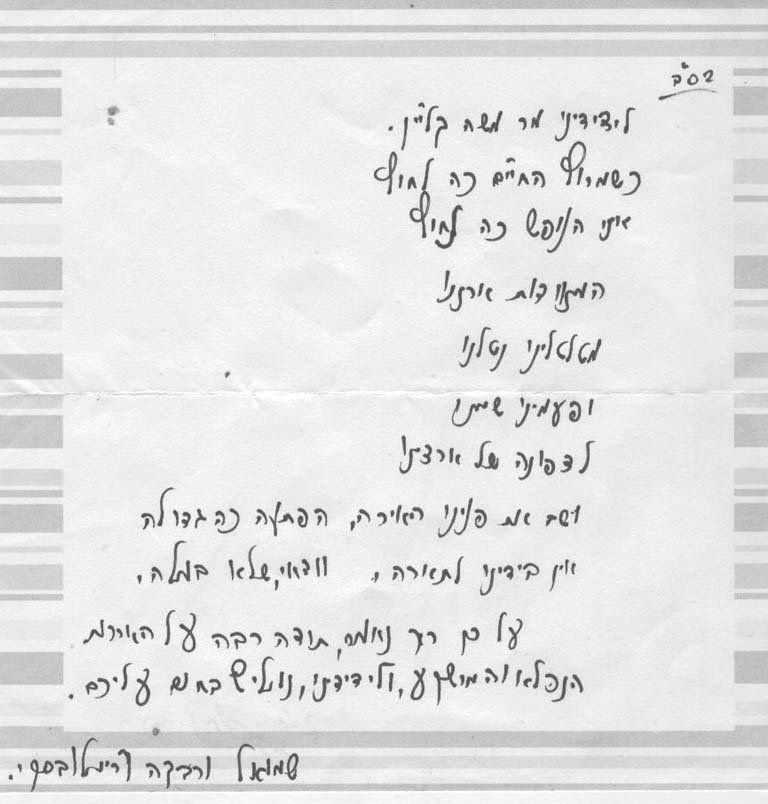 בס"ד
לידידינו מר משה קליין.
כשמרוץ החיים כה לחוץ
אזי הנופש כה נחוץ
המזוודות ארזנו
מטלטלינו נטלנו
ופעמינו שמנו
לצפונה של ארצנו
ושם את פנינו האירה, הפתעה כה גדולה
אין בידינו לתארה, וודאי, שלא במלה,
על כן רק נאמר, תודה רבה על הארוח
הנפלא והמושקע, ולידידנו, נמליץ בחום עליכם.
שמואל ורבקה